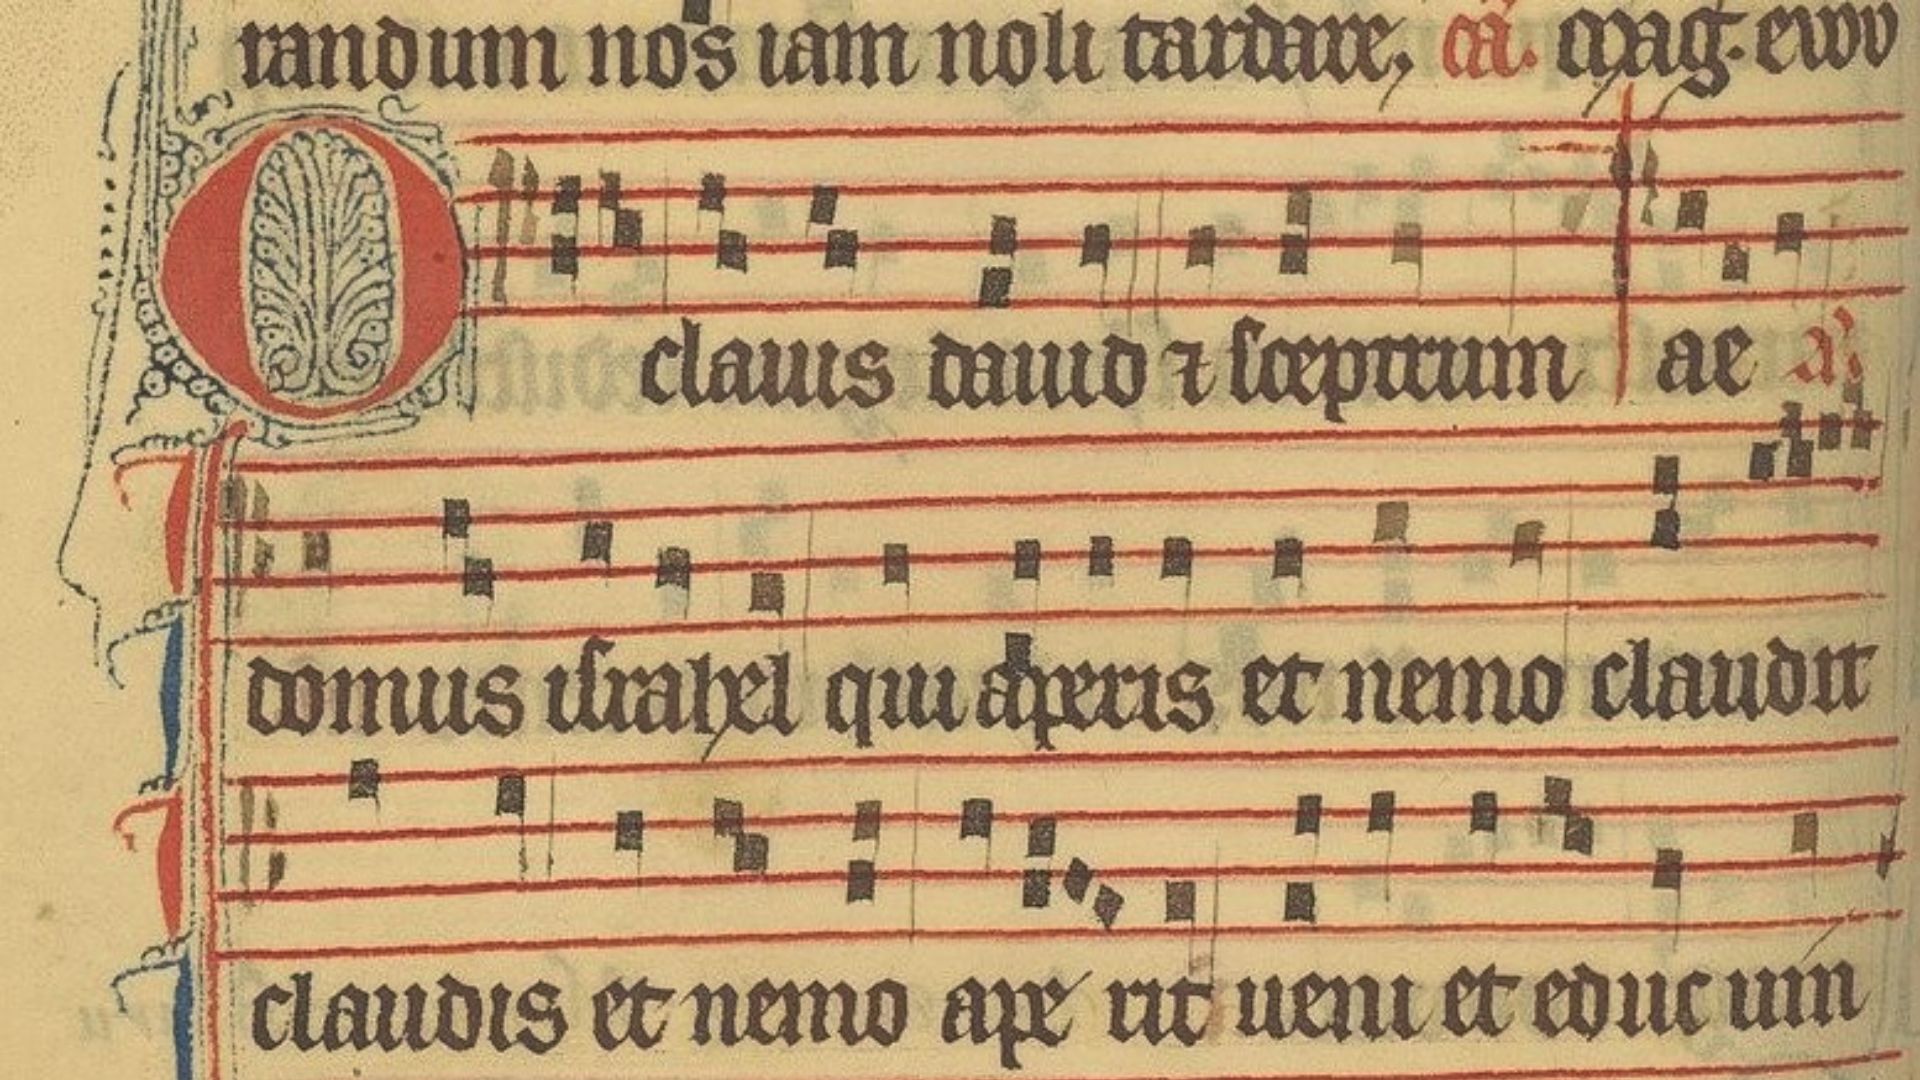 randum nos iam noli tardare, ca. mag. evov
O clauis dauid ⁊ sceptrum ae a.
domus israhel qui aperis et nemo claudit
claudis et nemo ape rit ueni et educ uin